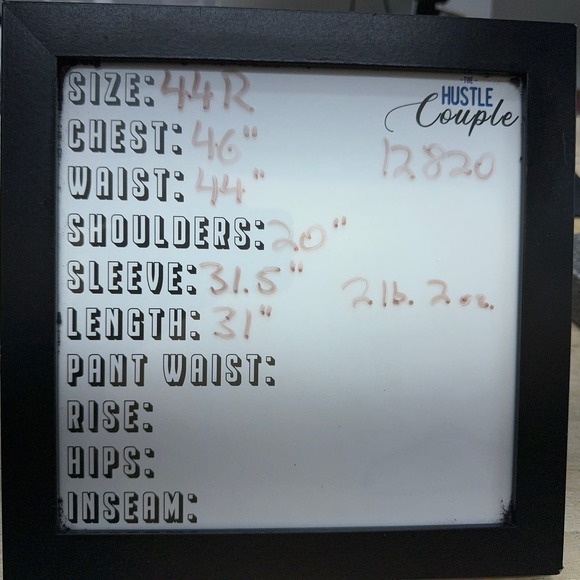 SIZE: 44R
THE
HUSTLE
Couple
CHEST: 46"
12820
WAIST: 44"
SHOULDERS: 20"
SLEEVE: 31.5"
2 lb. 2 oz.
LENGTH: 31"
PANT WAIST:
RISE:
HIPS:
INSEAM: